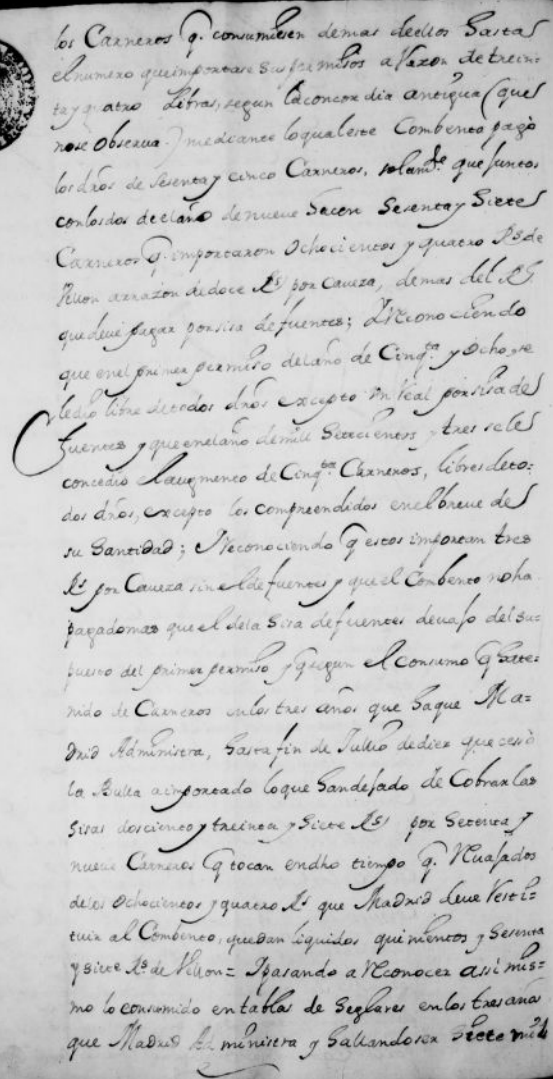 los Carneros q. consumiesen demas deellos hasta
el numero que importase sus permisos a Razon de trein-
ta y quatro Libras, segun la concordia antigua (que
no se observa.) mediante lo qual este Combento pagò
los dros de sesenta y cinco Carneros, solamte que juntos
con los dos de el año de nueve hacen Sesenta y Siete
Carneros q. importaron ochocientos y quatro Rs de
Vellon arrazon de doce Rs por caveza, demas del Rl
que deve pagar por sisa de fuentes; Y Reconociendo
que en el primer permiso del año de Cinqta y ocho, se
le dio libre de todos dros excepto un Real por sisa de
fuentes y que en el año de mill Setecientos y tres se le
concedio el augmento de Cinqta Carneros, libres de to=
dos dros, excepto los compreendidos en el breve de
su Santidad; Y Reconociendo q estos importan tres
Rs por Caveza sin el de fuentes y que el Combento no ha
pagado mas que el de la Sisa de fuentes devajo del su=
puesto del primer permiso y q segun el consumo q ha te=
nido de Carneros en los tres años que haque Ma=
drid Administra, hasta fin de Jullio de diez que cesò
la Bulla a importado lo que han dejado de Cobrar las
sisas doscientos y treinta y siete Rs por Setenta y
nueve Carneros q tocan en dho tiempo q. Revajados
de los ochocientos y quatro Rs que Madrid deve Resti=
tuir al Combento, quedan liquidos quinientos y sesenta
y siete Rs de Vellon= Y pasando a Reconocer assi mis=
mo lo consumido en tablas de Seglares en los tres años
que Madrid Administra y hallando ser siete mil